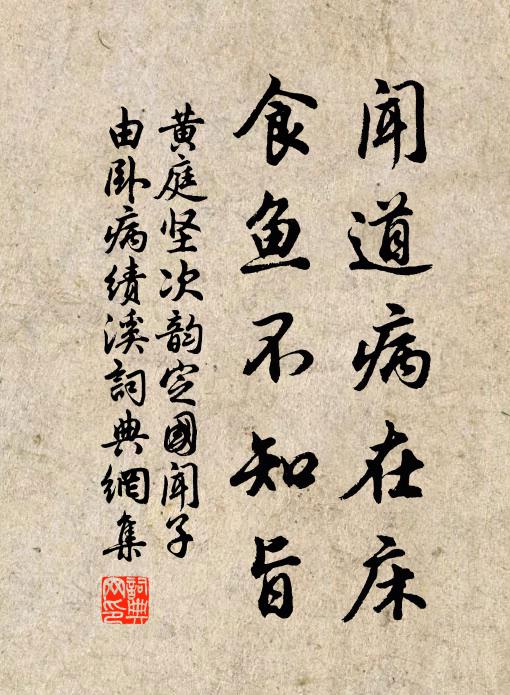 闻道病在床
食鱼不知旨
黄庭坚次韵定國闻子
由卧病績溪詞典網集
詞典網印